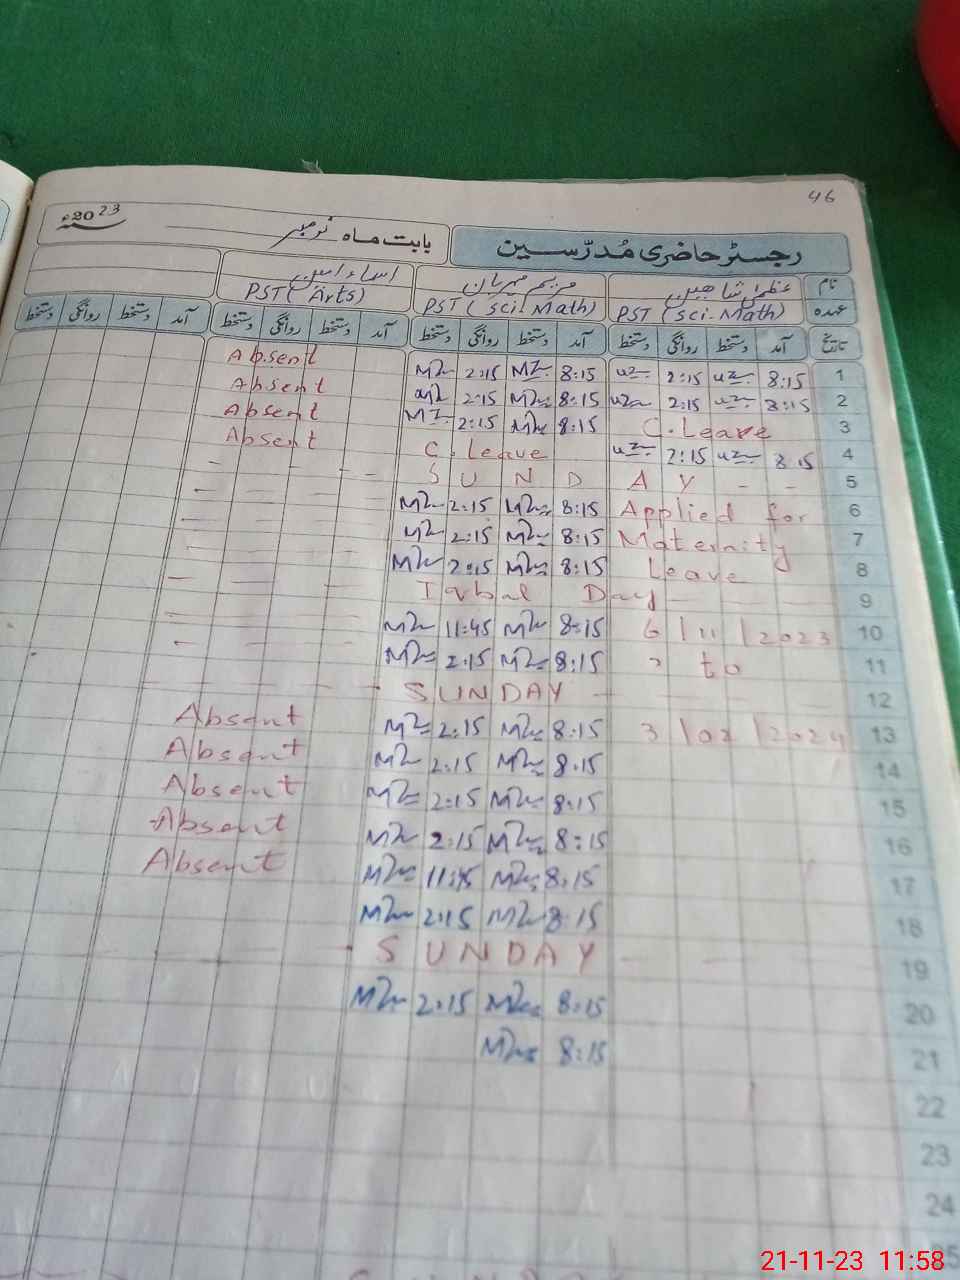 46
رجسٹر حاضری مُدرّسین
بابت ماہ نومبر
سنہ 2023ء
نام عظمیٰ شاہین مریم مہربان اسماء
عہدہ PST (Sci-Math) PST (Sci-Math) PST (Arts)
تاریخ آمد دستخط روانگی دستخط آمد دستخط روانگی دستخط آمد دستخط روانگی دستخط آمد دستخط روانگی دستخط
Absent 2:15 8:15 2:15 8:15 1
Absent 2:15 8:15 2:15 8:15 2
Absent 2:15 8:15 C.Leave 3
Absent C.Leave 2:15 8:15 4
S U N D A Y - - 5
2:15 8:15 Applied for 6
2:15 8:15 Maternity 7
2:15 8:15 Leave 8
Iqbal Day 9
11:45 8:15 6/11/2023 10
2:15 8:15 to 11
SUNDAY 12
Absent 2:15 8:15 3/02/2024 13
Absent 2:15 8:15 14
Absent 2:15 8:15 15
Absent 2:15 8:15 16
Absent 11:45 8:15 17
2:15 8:15 18
SUNDAY 19
2:15 8:15 20
8:15 21
22
23
24
25
21-11-23 11:58